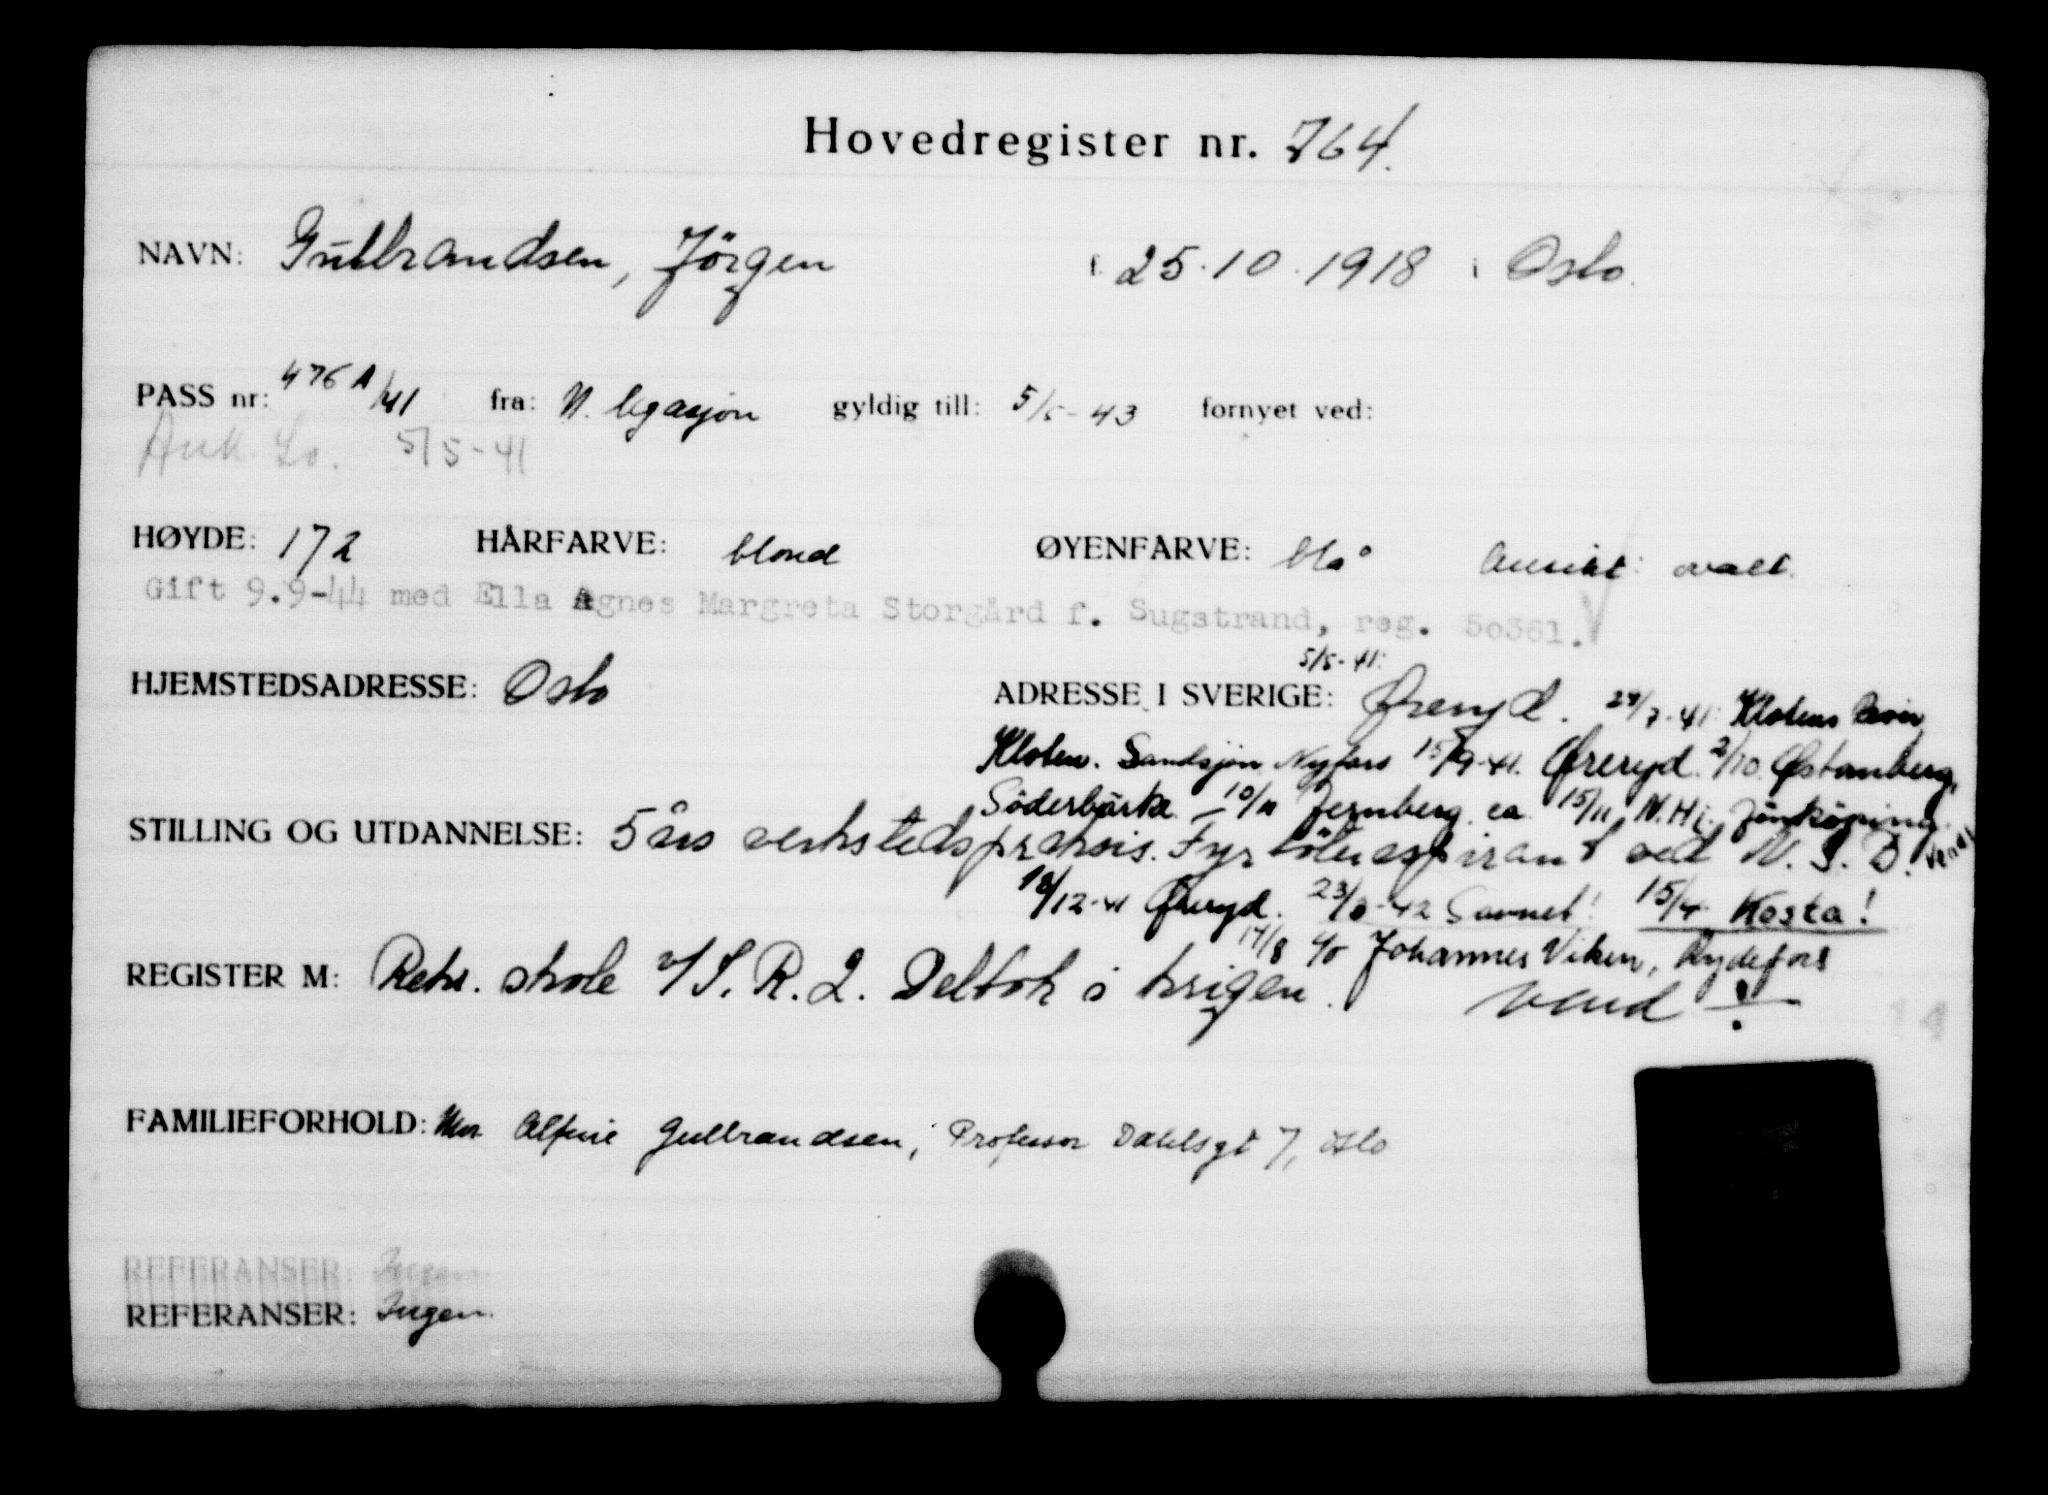 Hovedregister nr. 764.
NAVN: Gulbrandsen, Jörgen f. 25.10.1918 i Oslo.
PASS nr: 476A/41 fra: N. legasjon gyldig till: 5/5-43 fornyet ved:
Ank. Lo. 5/5-41
HØYDE: 172 HÅRFARVE: blond ØYENFARVE: blå Ansikt: ovalt.
Gift 9.9-44 med Ella Agnes Margreta Storgård f. Sugstrand, reg. 50361.
5/5-41:
HJEMSTEDSADRESSE: Oslo ADRESSE I SVERIGE: Øreryd. 24/7-41: Klotens Revir,
Kloten. Sandsjön Nyfors 15/9-41. Øreryd. 2/10 Østanberg,
Söderbärke – 10/11 Jernberg. ca 15/11 N.H. i Jönköping.
STILLING OG UTDANNELSE: 5 års verkstedspraksis. Fyrböteraspirant ved N.S.B. Vend!
18/12-41 Øreryd. 23/3-42 Savnet! 15/4 Kosta!
17/8 c/o Johannes Viken, Rydefors
REGISTER M: Rekr. skole v/ I.R.2. Deltok i krigen. Vend!
FAMILIEFORHOLD: Mor Alfine Gulbrandsen, Professor Dahlsgt 7, Oslo
REFERANSER: Ingen
REFERANSER: Ingen.